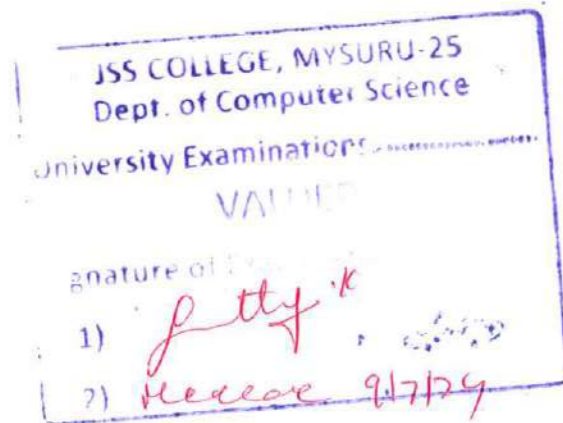 JSS COLLEGE, MYSURU-25
Dept. of Computer Science
University Examinations
VALUED
gnature of
1)
2) 9/7/24